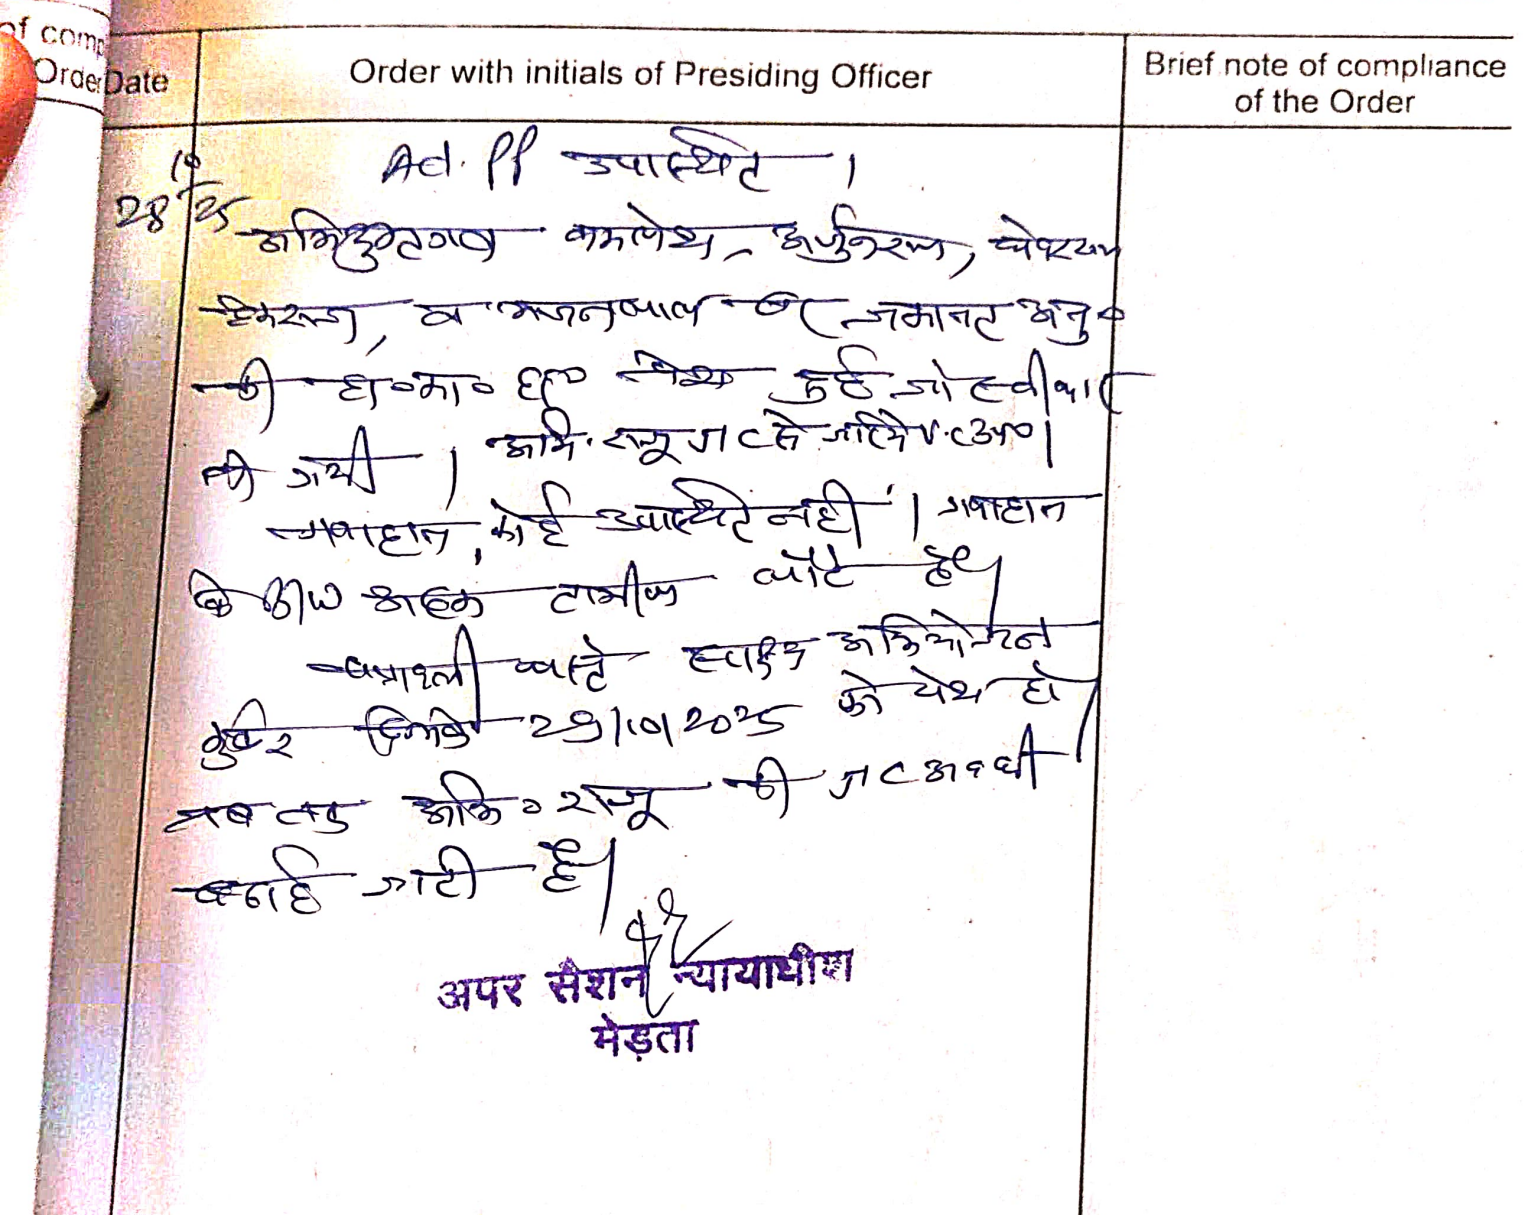 of comp
Order
Date
Order with initials of Presiding Officer
Brief note of compliance
of the Order
28/10/25
Ad. PP उपस्थित ।
अभियुक्तगण कमलेश, अर्जुनराम,
व की जमानत अनु०
की हा०मा० पेश हुई जो स्वीकार
की गयी ।
अभि. राजू JC से जरिये V.C उप० ।
गवाहान कोई उपस्थित नहीं । गवाहान
के अदम तामील लौटे है।
पत्रावली वास्ते साक्ष्य अभियोजन
हेतु दिनांक 29/10/2025 को पेश हो
तब तक अभि० राजू की JC अवधी
बढाई जाती है।
अपर सैशन न्यायाधीश
मेड़ता